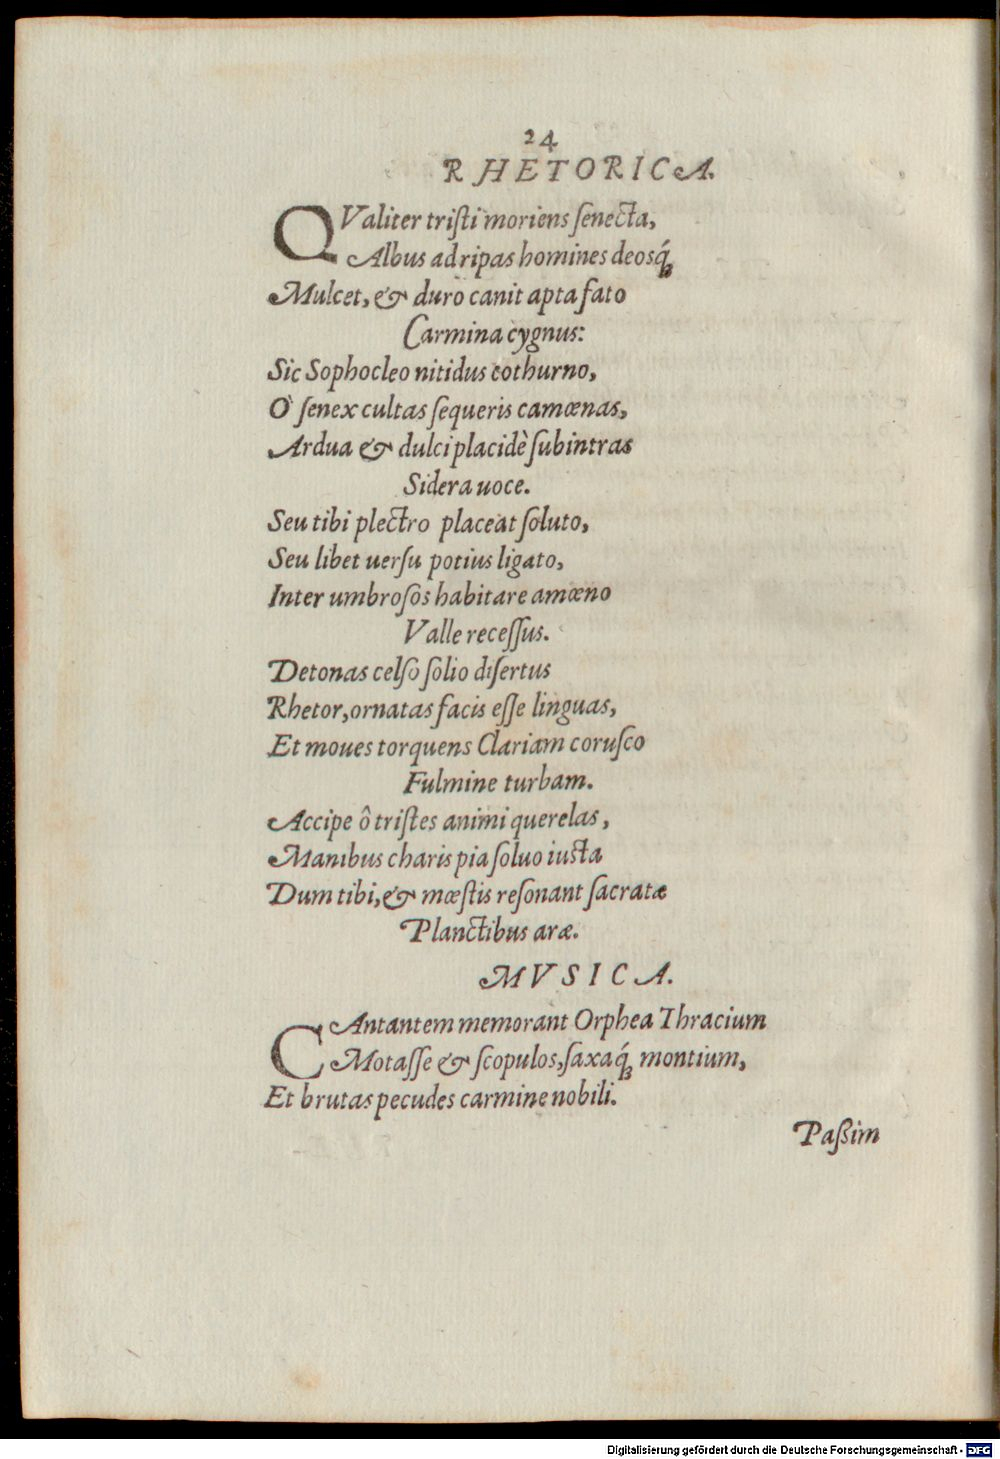 24
RHETORICA.
QValiter tristi moriens senecta,
Albus ad ripas homines deosq́ꝫ
Mulcet, & duro canit apta fato
Carmina cygnus:
Sic Sophocleo nitidus cothurno,
Ò senex cultas sequeris camœnas,
Ardua & dulci placidè subintras
Sidera uoce.
Seu tibi plectro placeat soluto,
Seu libet uersu potius ligato,
Inter umbrosos habitare amœno
Valle recessus.
Detonas celso solio disertus
Rhetor, ornatas facis esse linguas,
Et moues torquens Clariam corusco
Fulmine turbam.
Accipe ô tristes animi querelas,
Manibus charis pia soluo iusta
Dum tibi, & mœstis resonant sacratæ
Planctibus aræ.
MVSICA.
CAntantem memorant Orphea Thracium
Motasse & scopulos, saxaq́ꝫ montium,
Et brutas pecudes carmine nobili.
Paßim
Digitalisierung gefördert durch die Deutsche Forschungsgemeinschaft - DFG